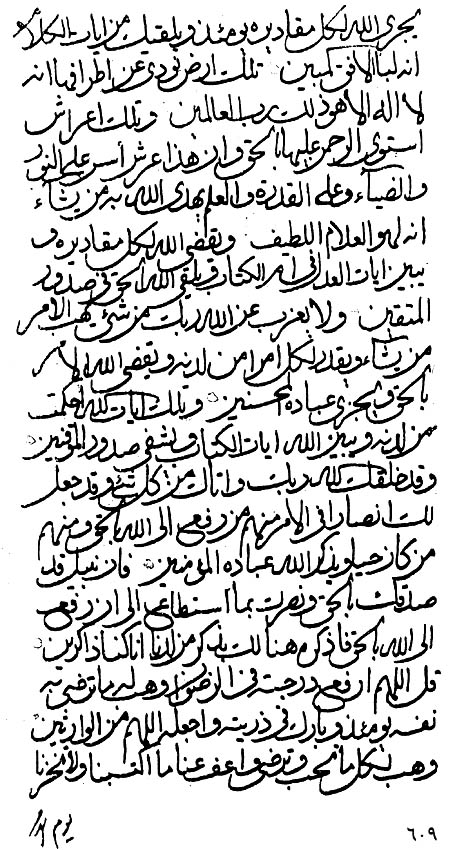 يجزى الله لكل مقاديره يومئذ ويلقيك من ايات الكلام
انه لبالافق كمبين تلك ارض نودى عن اطرافها انه
لا اله الا هو ذلك رب العالمين وتلك اعراش
استوى الرحمن عليها بالحق وان هذا عرش أسس على النور
والضياء وعلى القدرة والعلم يهدى الله به من يشاء
انه لهو العلام اللطيف ويقضى الله لكل مقاديره و
يبين ايات العدل فى ام الكتاب ويلقى الله الحق فى صدور
المتقين ولا يعزب عن الله ربك من شئ يهب الامر
من يشاء ويقدر لكل امرا من لدنه ويقضى الله الامر
بالحق ويجزى عباده المحسنين وتلك ايات الله احكمت
من لدنه ويبين الله ايات الكتاب ويشفى صدور الموقنين
وقد خلقك الله ربك واتاك من كل شئ وقد جعل
لك انصارا فى الامر منهم من رفع الى الله بالحق ومنهم
من كان حيا ويذكر الله عباده المؤمنين فان نبيل قد
صدقك بالحق ونصرك بما استطاع الى ان رفع
الى الله بالحق فاذكره هنالك بذكر من لدنا انا كنا ذاكرين
قل اللهم ارفع درجته فى الرضوان وهب له ما ترضى به
نفسه يومئذ وبارك فى ذريته واجعله اللهم من الوارثين
وهب لكل ما تحب وترضى واعف عنا ما اكتسبنا ولا تخزنا
يوم
٦٠٩